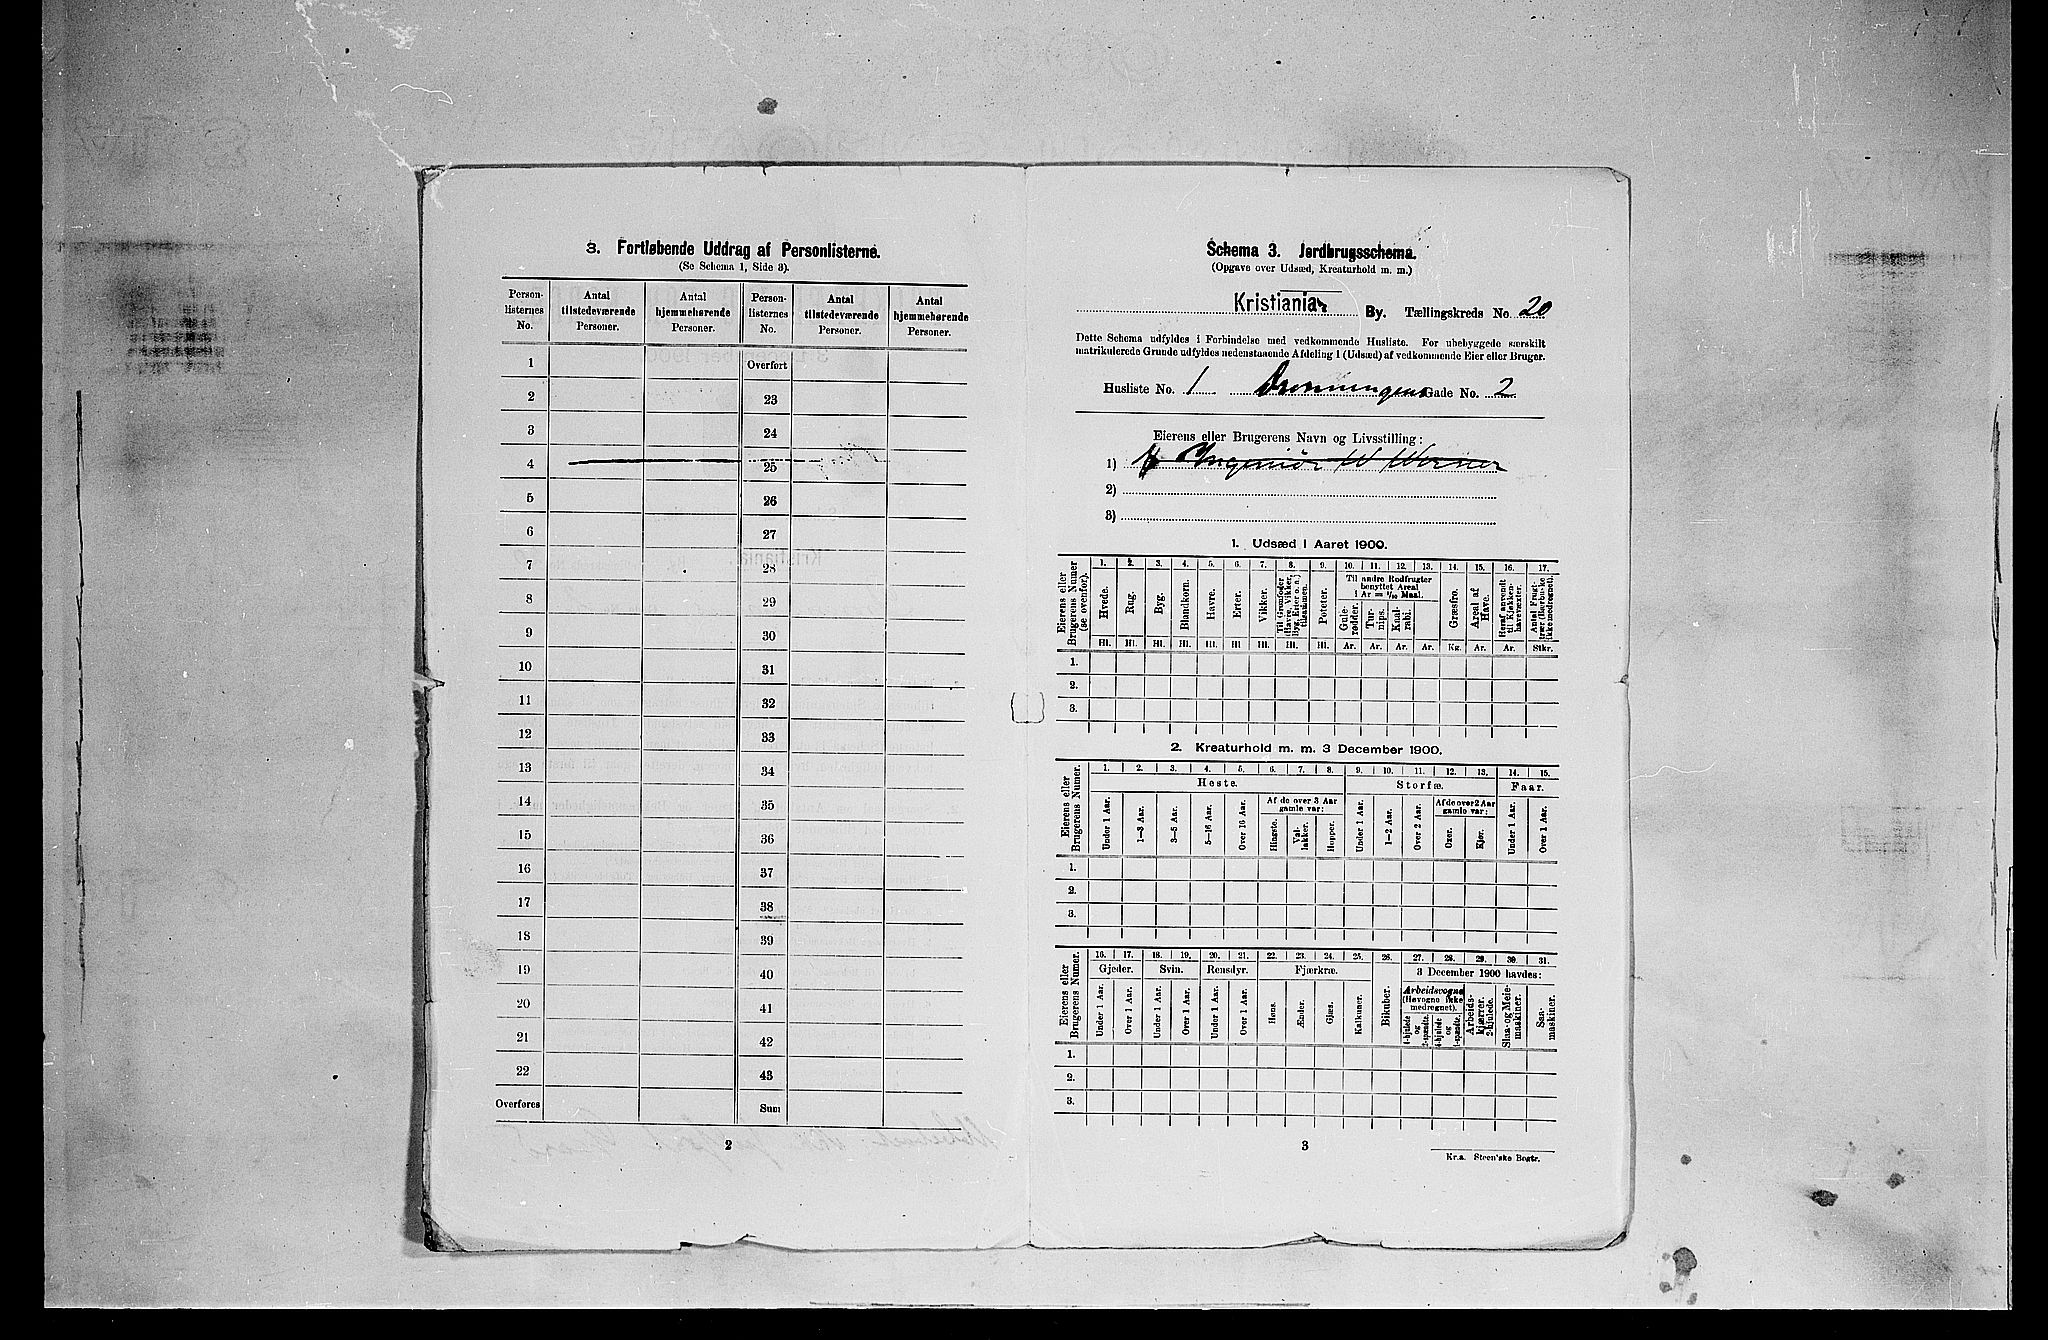 3. Fortløbende Uddrag af Personlisterne.
(Se Schema 1, Side 3).
Person-listernes No. | Antal tilstedeværende Personer. | Antal hjemmehørende Personer. | Person-listernes No. | Antal tilstedeværende Personer. | Antal hjemmehørende Personer.
1 Overført
2 23
3 24
4 25
5 26
6 27
7 28
8 29
9 30
10 31
11 32
12 33
13 34
14 35
15 36
16 37
17 38
18 39
19 40
20 41
21 42
22 43
Overføres Sum
2
Schema 3. Jordbrugsschema.
(Opgave over Udsæd, Kreaturhold m. m.)
Kristiania By. Tællingskreds No. 20
Dette Schema udfyldes i Forbindelse med vedkommende Husliste. For ubebyggede særskilt
matrikulerede Grunde udfyldes nedenstaaende Afdeling 1 (Udsæd) af vedkommende Eier eller Bruger.
Husliste No. 1 Dronningens Gade No. 2
Eierens eller Brugerens Navn og Livsstilling:
1) Ingeniør W Werner
2)
3)
1. Udsæd i Aaret 1900.
Eierens eller Brugerens Numer (se ovenfor).
1. 2. 3. 4. 5. 6. 7. 8. 9. 10. 11. 12. 13. 14. 15. 16. 17.
Til andre Rodfrugter benyttet Areal i Ar = 1/10 Maal.
Hvede. Rug. Byg. Blandkorn. Havre. Erter. Vikker. Til Grønfoder (Havre, Vikker, Byg, Erter o. a.) tilsammen. Poteter. Gulerødder. Turnips. Kaalrabi. Græsfrø. Areal af Have. Heraf anvendt til Kjøkkenhavevæxter. Antal Frugttrær (Bærbuske ikke medregnet).
Hl. Hl. Hl. Hl. Hl. Hl. Hl. Hl. Hl. Ar. Ar. Ar. Ar. Kg. Ar. Ar. Stkr.
1.
2.
3.
2. Kreaturhold m. m. 3 December 1900.
Eierens eller Brugerens Numer.
1. 2. 3. 4. 5. 6. 7. 8. 9. 10. 11. 12. 13. 14. 15.
Heste. Storfæ. Faar.
Af de over 3 Aar gamle var: Af de over 2 Aar gamle var:
Under 1 Aar. 1—3 Aar. 3—5 Aar. 5—16 Aar. Over 16 Aar. Hingste. Vallakker. Hopper. Under 1 Aar. 1—2 Aar. Over 2 Aar. Oxer. Kjør. Under 1 Aar. Over 1 Aar.
1.
2.
3.
Eierens eller Brugerens Numer.
16. 17. 18. 19. 20. 21. 22. 23. 24. 25. 26. 27. 28. 29. 30. 31.
Gjeder. Svin. Rensdyr. Fjærkræ. 3 December 1900 havdes:
Arbeidsvogne (Høvogne ikke medregnet).
Under 1 Aar. Over 1 Aar. Under 1 Aar. Over 1 Aar. Under 1 Aar. Over 1 Aar. Høns. Ænder. Gjæs. Kalkuner. Bikuber. 4-hjulede og 2-spændte. 4-hjulede og 1-spændte. Arbeidskjærrer, 2-hjulede. Slaa- og Meiemaskiner. Saamaskiner.
1.
2.
3.
3
Kr.a. Steen'ske Bogtr.